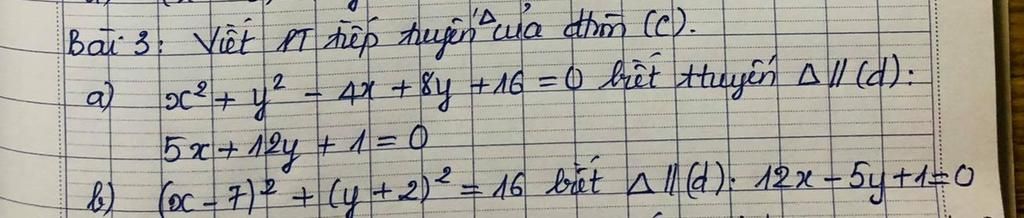 Bài 3: Viết PT tiếp tuyến Δ của đtròn (C).
a) x² + y² - 4x + 8y + 16 = 0 biết ttuyến Δ // (d):
5x + 12y + 1 = 0
b) (x - 7)² + (y + 2)² = 16 biết Δ // (d): 12x - 5y + 1 = 0